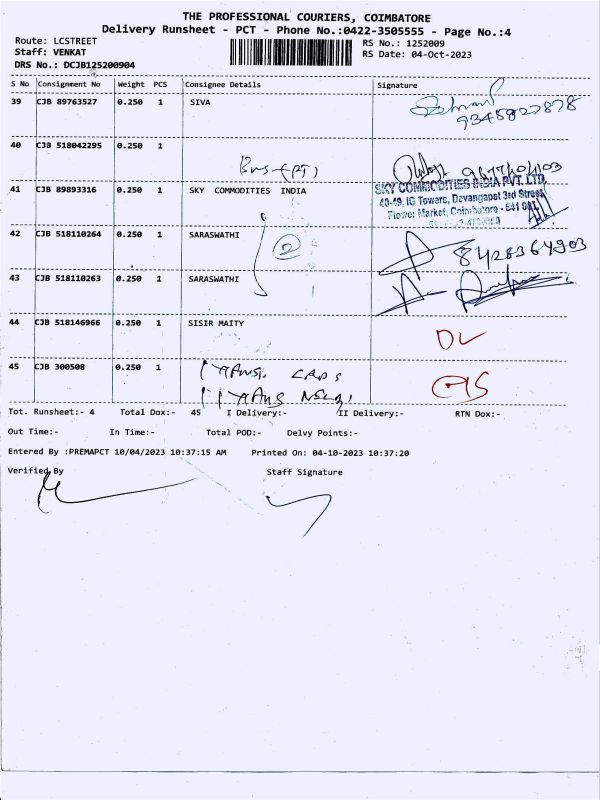 THE PROFESSIONAL COURIERS, COIMBATORE
Delivery Runsheet - PCT - Phone No.:0422-3505555 - Page No.:4
Route: LCSTREET
RS No.: 1252009
Staff: VENKAT
RS Date: 04-Oct-2023
DRS No.: DCJB125200904
S No Consignment No Weight PCS Consignee Details Signature
39 CJB 89763527 0.250 1 SIVA
40 CJB 518042295 0.250 1
41 CJB 89893316 0.250 1 SKY COMMODITIES INDIA
SKY COMMODITIES INDIA PVT. LTD.
40-49, IG Towers, Devangapet 3rd Street
Flower Market, Coimbatore - 641 001
42 CJB 518110264 0.250 1 SARASWATHI
2
8428364903
43 CJB 518110263 0.250 1 SARASWATHI
44 CJB 518146966 0.250 1 SISIR MAITY
DL
45 CJB 300508 0.250 1
Tot. Runsheet:- 4 Total Dox:- 45 I Delivery:- II Delivery:- RTN Dox:-
Out Time:- In Time:- Total POD:- Delvy Points:-
Entered By :PREMAPCT 10/04/2023 10:37:15 AM Printed On: 04-10-2023 10:37:20
Verified By Staff Signature